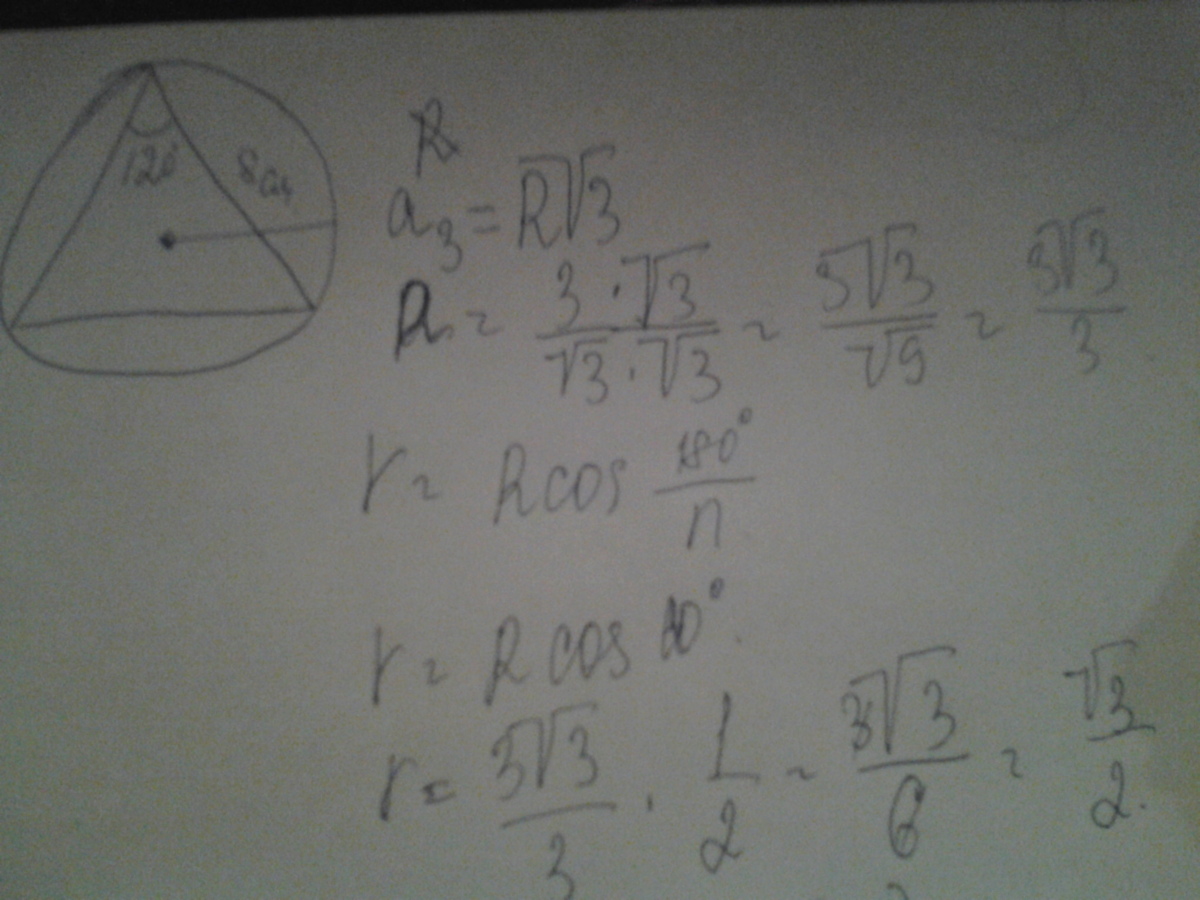 120° 8см
R
a₃ = R√3
R = 3·√3 / √3·√3 = 3√3 / √9 = 3√3 / 3
r = R cos 180° / n
r = R cos 60°.
r = 3√3 / 3 · 1 / 2 = 3√3 / 6 = √3 / 2.